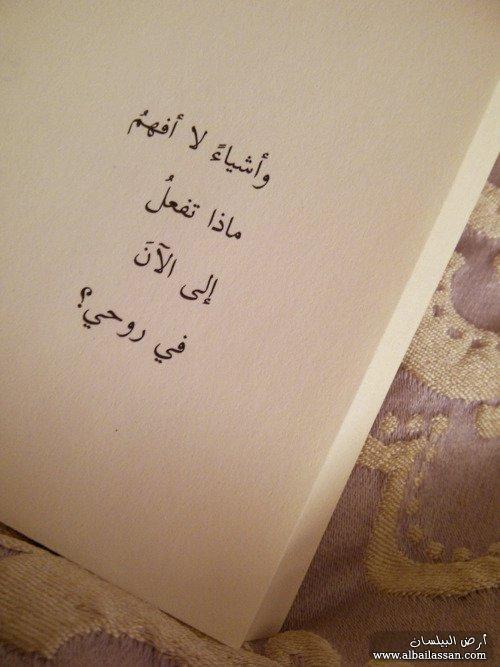 وأشياءً لا أفهمُ
ماذا تفعلُ
إلى الآنَ
في روحي؟
أرض البيلسان
www.albailassan.com